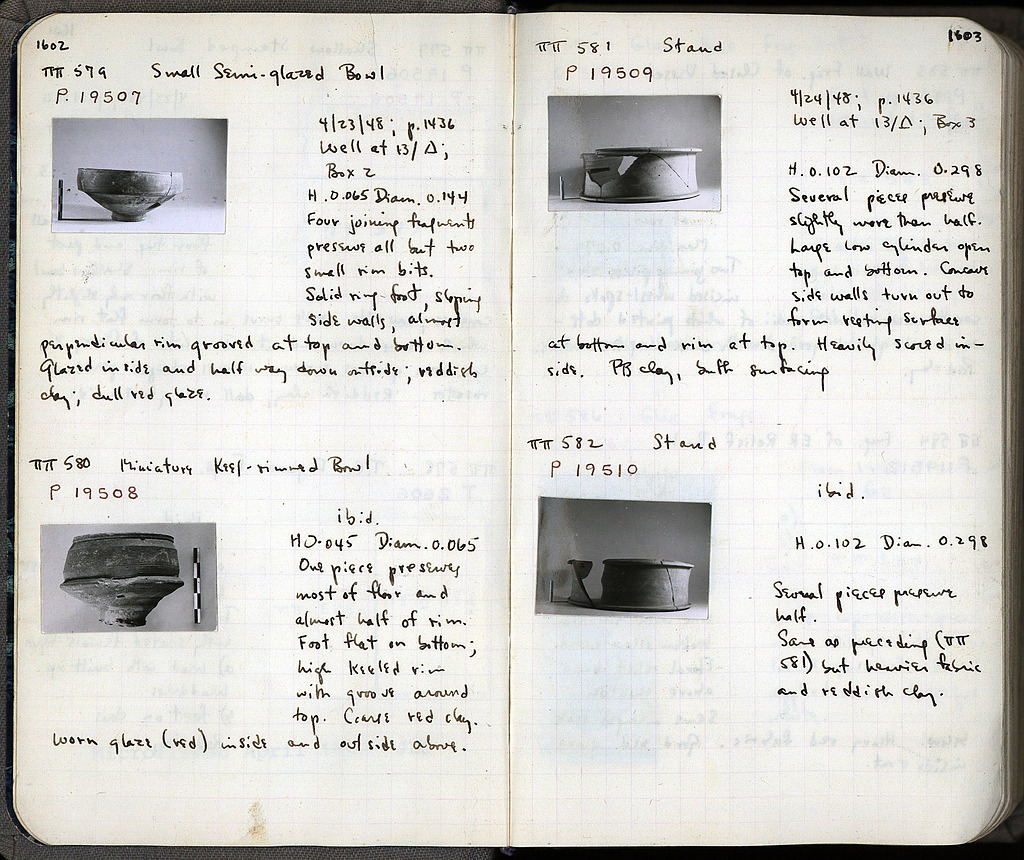 1602
ΠΠ 579 Small Semi-glazed Bowl
P. 19507
4/23/48; p.1436
Well at 13/Δ;
Box 2
H. 0.065 Diam. 0.144
Four joining fragments
preserve all but two
small rim bits.
Solid ring-foot, sloping
side walls, almost
perpendicular rim grooved at top and bottom.
Glazed inside and half way down outside; reddish
clay; dull red glaze.
ΠΠ 580 Miniature Keel-rimmed Bowl
P 19508
ibid.
H 0.045 Diam. 0.065
One piece preserves
most of floor and
almost half of rim.
Foot flat on bottom;
high keeled rim
with groove around
top. Coarse red clay.
Worn glaze (red) inside and outside above.
1603
ΠΠ 581 Stand
P 19509
4/24/48; p.1436
Well at 13/Δ; Box 3
H. 0.102 Diam. 0.298
Several pieces preserve
slightly more than half.
Large low cylinder open
top and bottom. Concave
side walls turn out to
form resting surface
at bottom and rim at top. Heavily scored in-
side. PB clay, buff surfacing
ΠΠ 582 Stand
P 19510
ibid.
H. 0.102 Diam. 0.298
Several pieces preserve
half.
Same as preceding (ΠΠ
581) but heavier fabric
and reddish clay.